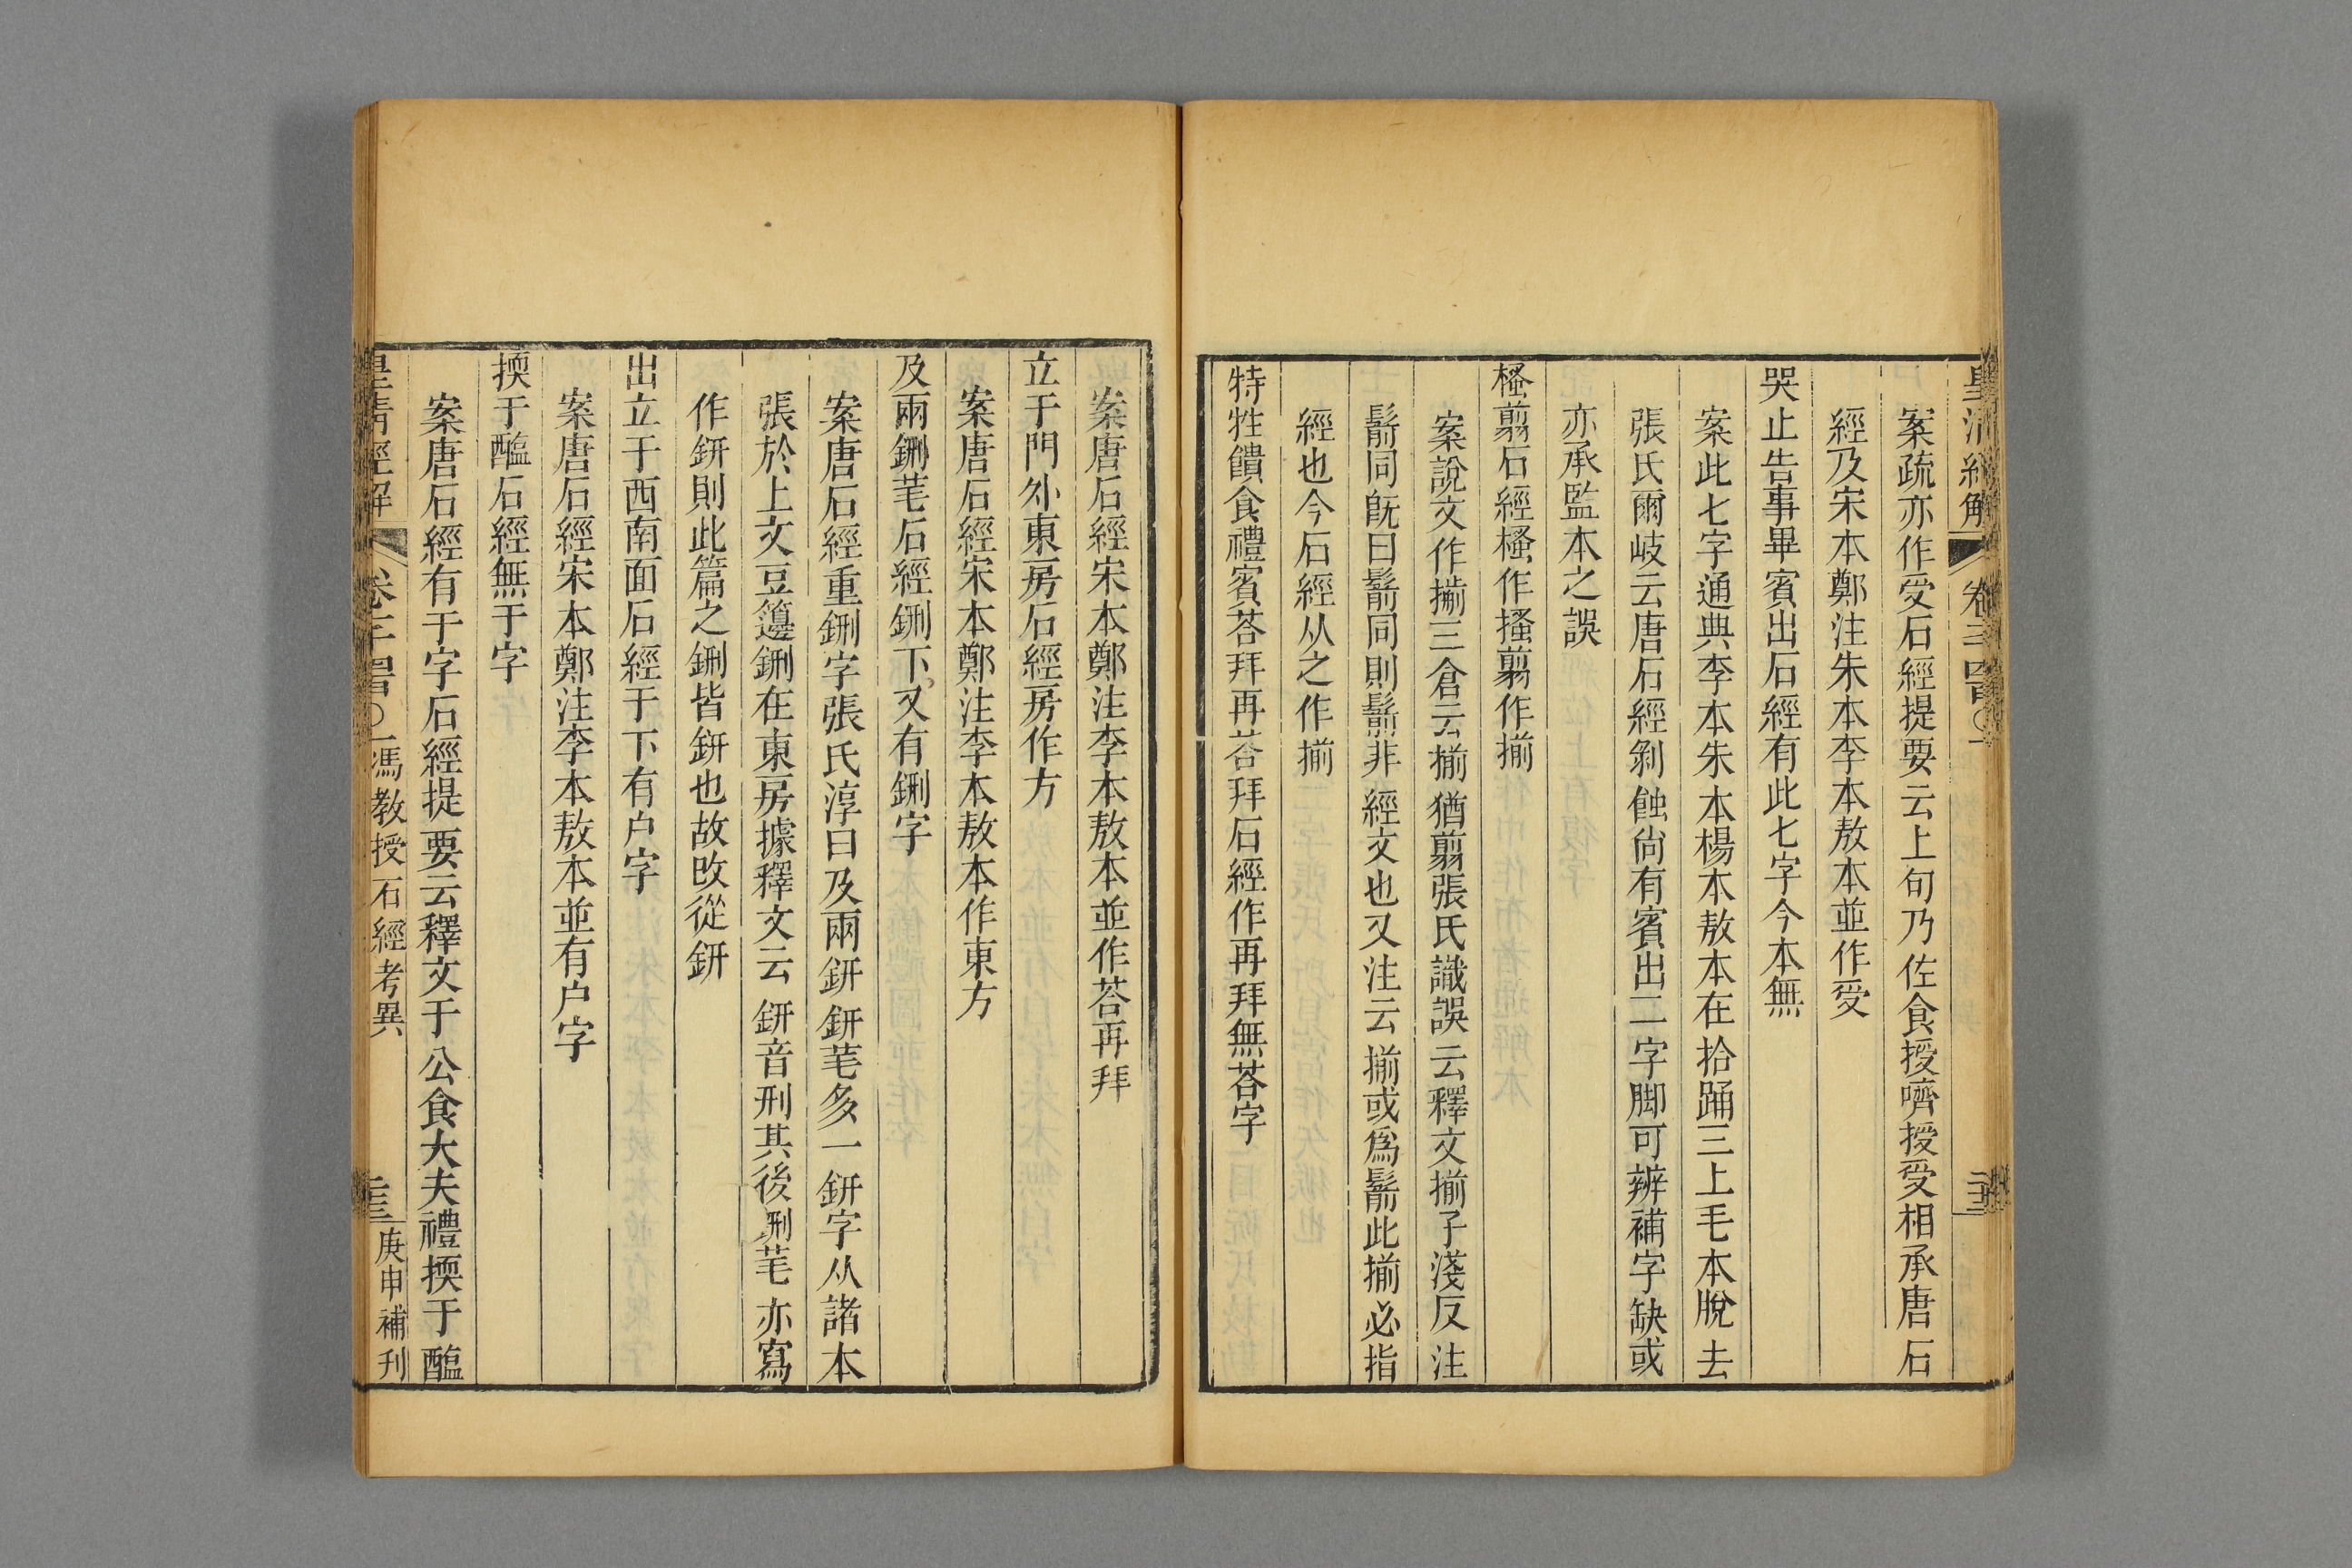 皇清經解
卷千四百〇一
案疏亦作受石經提要云上句乃佐食授嚌授受相承唐石
經及宋本鄭注朱本李本敖本並作受
哭止告事畢賓出石經有此七字今本無
案此七字通典李本朱本楊本敖本在拾踊三上毛本脫去
張氏爾岐云唐石經剝蝕尙有賓出二字脚可辨補字缺或
亦承監本之誤
櫁翦石經櫁作搔翦作揃
案說文作搚三倉云揃猶翦張氏識誤云釋文揃子淺反注
鬋同旣曰鬋同則鬋非經文也又注云揃或爲鬋此揃必指
經也今石經从之作揃
特牲饋食禮賓荅拜再荅拜石經作再拜無荅字
案唐石經宋本鄭注李本敖本並作荅再拜
立于門外東房石經房作方
案唐石經宋本鄭注李本敖本作東方
及兩鉶芼石經鉶下又有鉶字
案唐石經重鉶字張氏淳曰及兩鈃鈃芼多一鈃字从諸本
張於上文豆籩鉶在東房據釋文云鈃音刑其後鉶芼亦寫
作鈃則此篇之鉶皆鈃也故改從鈃
出立于西南面石經于下有户字
案唐石經宋本鄭注李本敖本並有户字
擩于醢石經無于字
案唐石經有于字石經提要云釋文于公食大夫禮擩于醢
皇清經解
卷千四百〇一
馮教授石經考異
庚申補刊